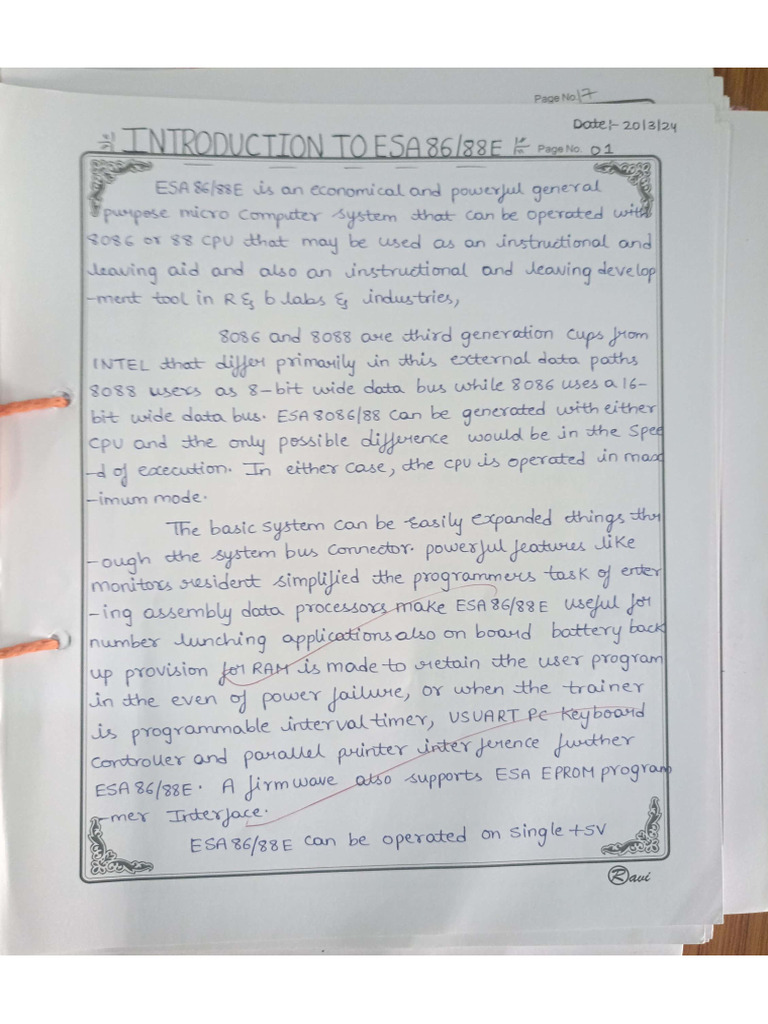 Page No. 17
Date:- 20/3/24
INTRODUCTION TO ESA 86/88E
Page No. 01
ESA 86/88E is an economical and powerful general
purpose micro computer system that can be operated with
8086 or 88 CPU that may be used as an instructional and
leaving aid and also an instructional and leaving develop
-ment tool in R & b labs & industries,
8086 and 8088 are third generation cups from
INTEL that differ primarily in this external data paths
8088 users as 8-bit wide data bus while 8086 uses a 16-
bit wide data bus. ESA 8086/88 can be generated with either
CPU and the only possible difference would be in the Spee
-d of execution. In either case, the CPU is operated in max
-imum mode.
The basic system can be easily expanded things thr
-ough the system bus connector. powerful features like
monitors resident simplified the programmers task of enter
-ing assembly data processors make ESA 86/88E useful for
number lunching applications also on board battery back
up provision for RAM is made to retain the user program
in the even of power failure, or when the trainer
is programmable interval timer, USUART PC Keyboard
Controller and parallel printer interference further
ESA 86/88E. A firmwave also supports ESA EPROM program
-mer Interface.
ESA 86/88E can be operated on single +5V
Ravi